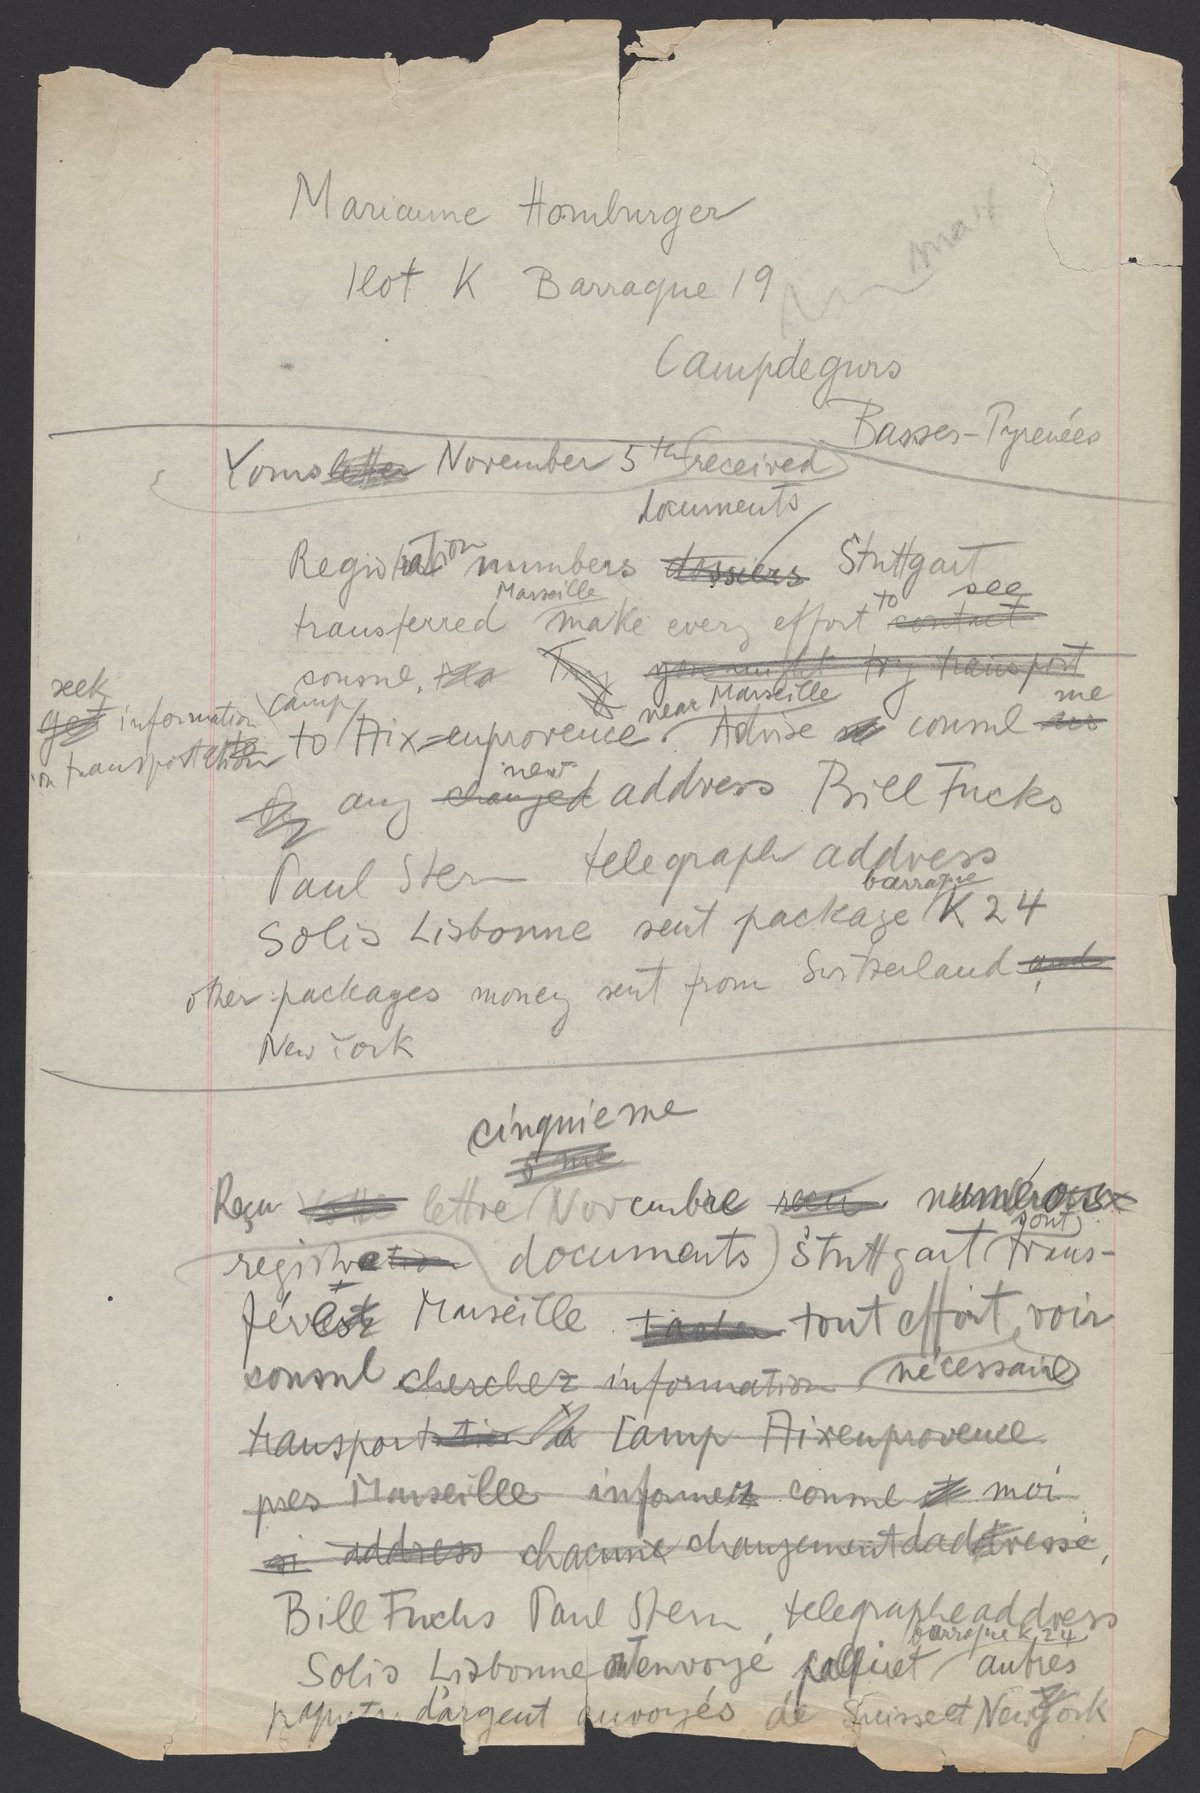 Marianne Homburger
Ilot K Barraque 19
Campdegurs
Basses-Pyrenées
Yours letter November 5th received
documents
Registration numbers dossiers Stuttgart
Marseille see
transferred make every effort to contact
consul. Try you might try transport
seek camp near Marseille me
get information to Aix-enprovence. Advise consul us
on transportation
new
any changed address Bill Fucks
Paul Stern telegraph address
barraque
Solis Lisbonne sent package K 24
other packages money sent from Switzerland and
New York
cinquieme
5 me
Reçu lettre Novembre recu numéros
sont
registration documents) Stuttgart trans-
férés Marseille tout effort voir
consul cherchez information nécessaire
transportation à Camp Aixenprovence
pres Marseille informez consul moi
si address chacune changement dadresse,
Bill Fuchs Paul Stern, telegraphe address
barraque K 24
Solis Lisbonne envoyé paquet autres
paquets d'argent envoyés de Suisse et New York